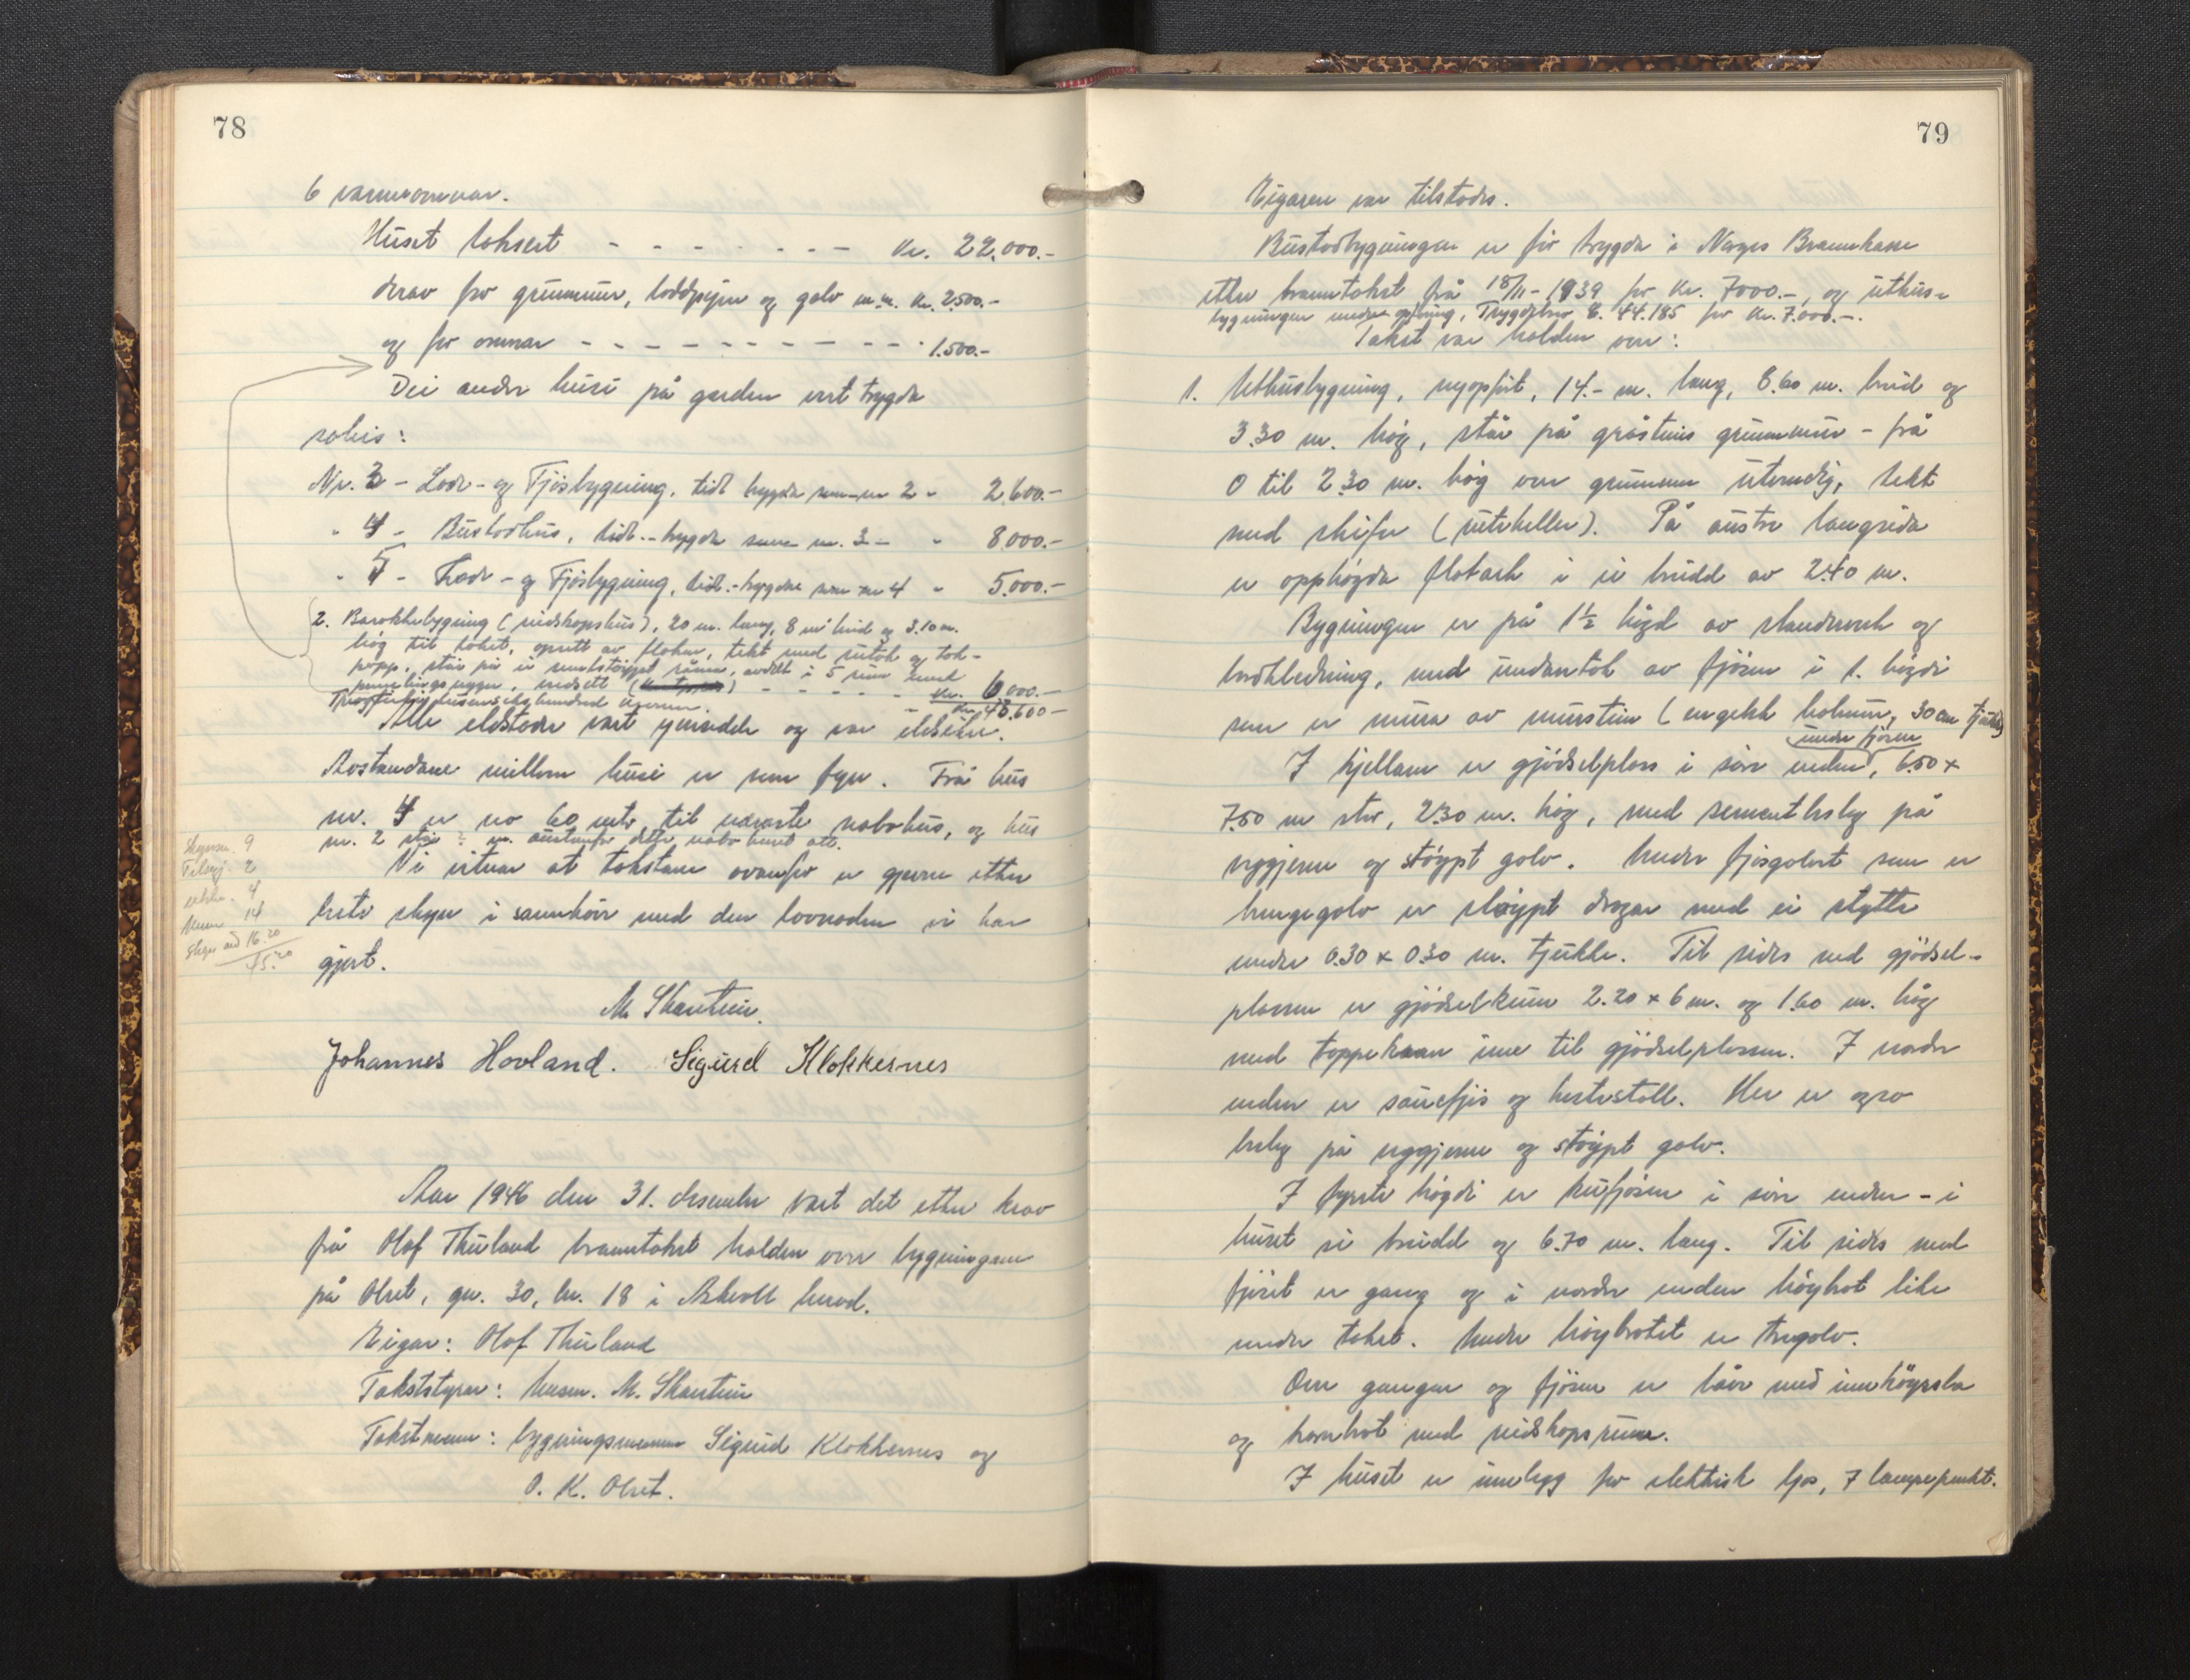 78
6 varmeomnar.
Huset taksert - - - - - - - kr. 22.000.-
derav for grunnmur, loddpipor og golv m.m. kr. 2500.-
og for omnar - - - - - - - - - - 1.500.-
Dei andre husi på garden vert trygda
soleis:
Nr. 3 - Lade- og Fjösbygning, tidl. trygda som nr 2 " 2.600.-
" 4 - Bustadhus, tidl. trygda som nr. 3 - " 8000.-
" 5 - Lade- og Fjösbygning, tidl. trygda som nr 4 " 5.000.-
2. Barakkebygning (reidskapshus), 20 m. lang, 8 m breid og 3.10 m.
høg til taket, opsett av flakar, tekt med sutak og tak-
papp, står på ei sementstøypt såle, avdelt i 5 rum med
vegger, verdsett - - - - - kr. 6000.-
kr. 43.600.-
Alle eldstader vart synfarne og var eldsikre.
Avstandane millom husi er som fyrr. Frå hus
nr. 4 er no 60 meter til næraste nabohus, og hus
nr. 2 står ? m. austanfor dette nabohuset att.
Vi vitnar at takstane ovanfor er gjorne etter
beste skyn i samhøve med den lovnaden vi har
gjort.
Skyssn. 9
Tilsyn. 2
4
14
Skyss 16.20
45.20
M. Skarstein.
Johannes Hovland. Sigurd Klokkernes
Aar 1946 den 31. desember vart det etter krav
frå Olaf Thuland branntakst halden over bygningane
på Olset, gn. 30, br. 18 i Askvoll herad.
Eigar: Olaf Thuland
Takststyrar: lensm. M. Skarstein
Takstmenn: bygningsmenn Sigurd Klokkernes og
O. K. Olset.
79
Eigaren var tilstades.
Bustadbygningen er för trygda i Noregs Brannkasse
etter branntakst frå 18/11-1939 for kr. 7000.-, og uthus-
bygningen under opföring, Trygdebrev 8. 44.185 for kr. 7.000.-.
Takst var halden over:
1. Uthusbygning, nyopfört, 14.- m. lang, 8.60 m. breid og
3.30 m. høg, står på gråsteins grunnmur - frå
0 til 2.30 m. høg over grunnen utvendig, tekt
med skifer (uteheller). På austre langsida
er opphøgda flotark i ei breidd av 2.40 m.
Bygningen er på 1½ høgd av standarverk og
bordkledning, med undantak av fjösen i 1. høgdi
som er mura av murstein (engelsk holmur, 30 cm tjukk)
I kjellaren er gjödselplass i söre enden, under fjösen 6.50 x
7.50 m stor, 2.30 m. høg, med sementbeslag på
veggjerne og støypt golv. Under fjösgolvet som er
hengegolv er støypt dragar med ei stytte
under 0.30 x 0.30 m. tjukke. Til sides ved gjödsel-
plassen er gjödselkum 2.20 x 6 m. og 1.60 m. høg
med tappekran inne til gjödselplassen. I nordre
enden er sauefjös og hestestall. Her er ogso
beslag på veggjerne og støypt golv.
I fyrste høgdi er kufjösen i söre enden - i
huset si breidd og 6.70 m. lang. Til sides med
fjöset er gang og i nordre enden høybrot like
under taket. Under høybrotet er tregolv.
Over gangen og fjösen er låve med innhøyrsla
og kornbrot med reidskapsrum.
I huset er innlegg for elektrisk ljos, 7 lampepunkt.